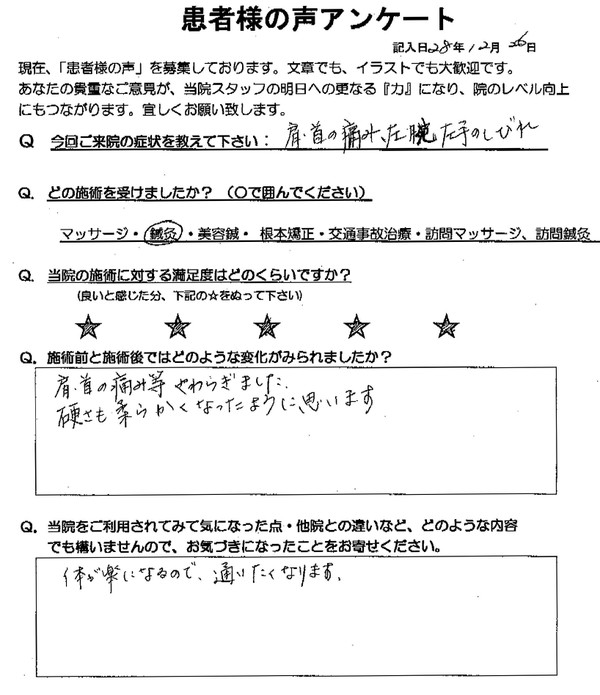 患者様の声アンケート
記入日28年12月26日
現在、「患者様の声」を募集しております。文章でも、イラストでも大歓迎です。
あなたの貴重なご意見が、当院スタッフの明日への更なる『力』になり、院のレベル向上
にもつながります。宜しくお願い致します。
Q 今回ご来院の症状を教えて下さい： 肩・首の痛み、左腕 左手のしびれ
Q. どの施術を受けましたか？（〇で囲んでください）
マッサージ・鍼灸・美容鍼・根本矯正・交通事故治療・訪問マッサージ、訪問鍼灸
Q. 当院の施術に対する満足度はどのくらいですか？
（良いと感じた分、下記の☆をぬって下さい）
Q. 施術前と施術後ではどのような変化がみられましたか？
肩・首の痛み等やわらぎました。
硬さも柔らかくなったように思います
Q. 当院をご利用されてみて気になった点・他院との違いなど、どのような内容
でも構いませんので、お気づきになったことをお寄せください。
体が楽になるので、通いたくなります。